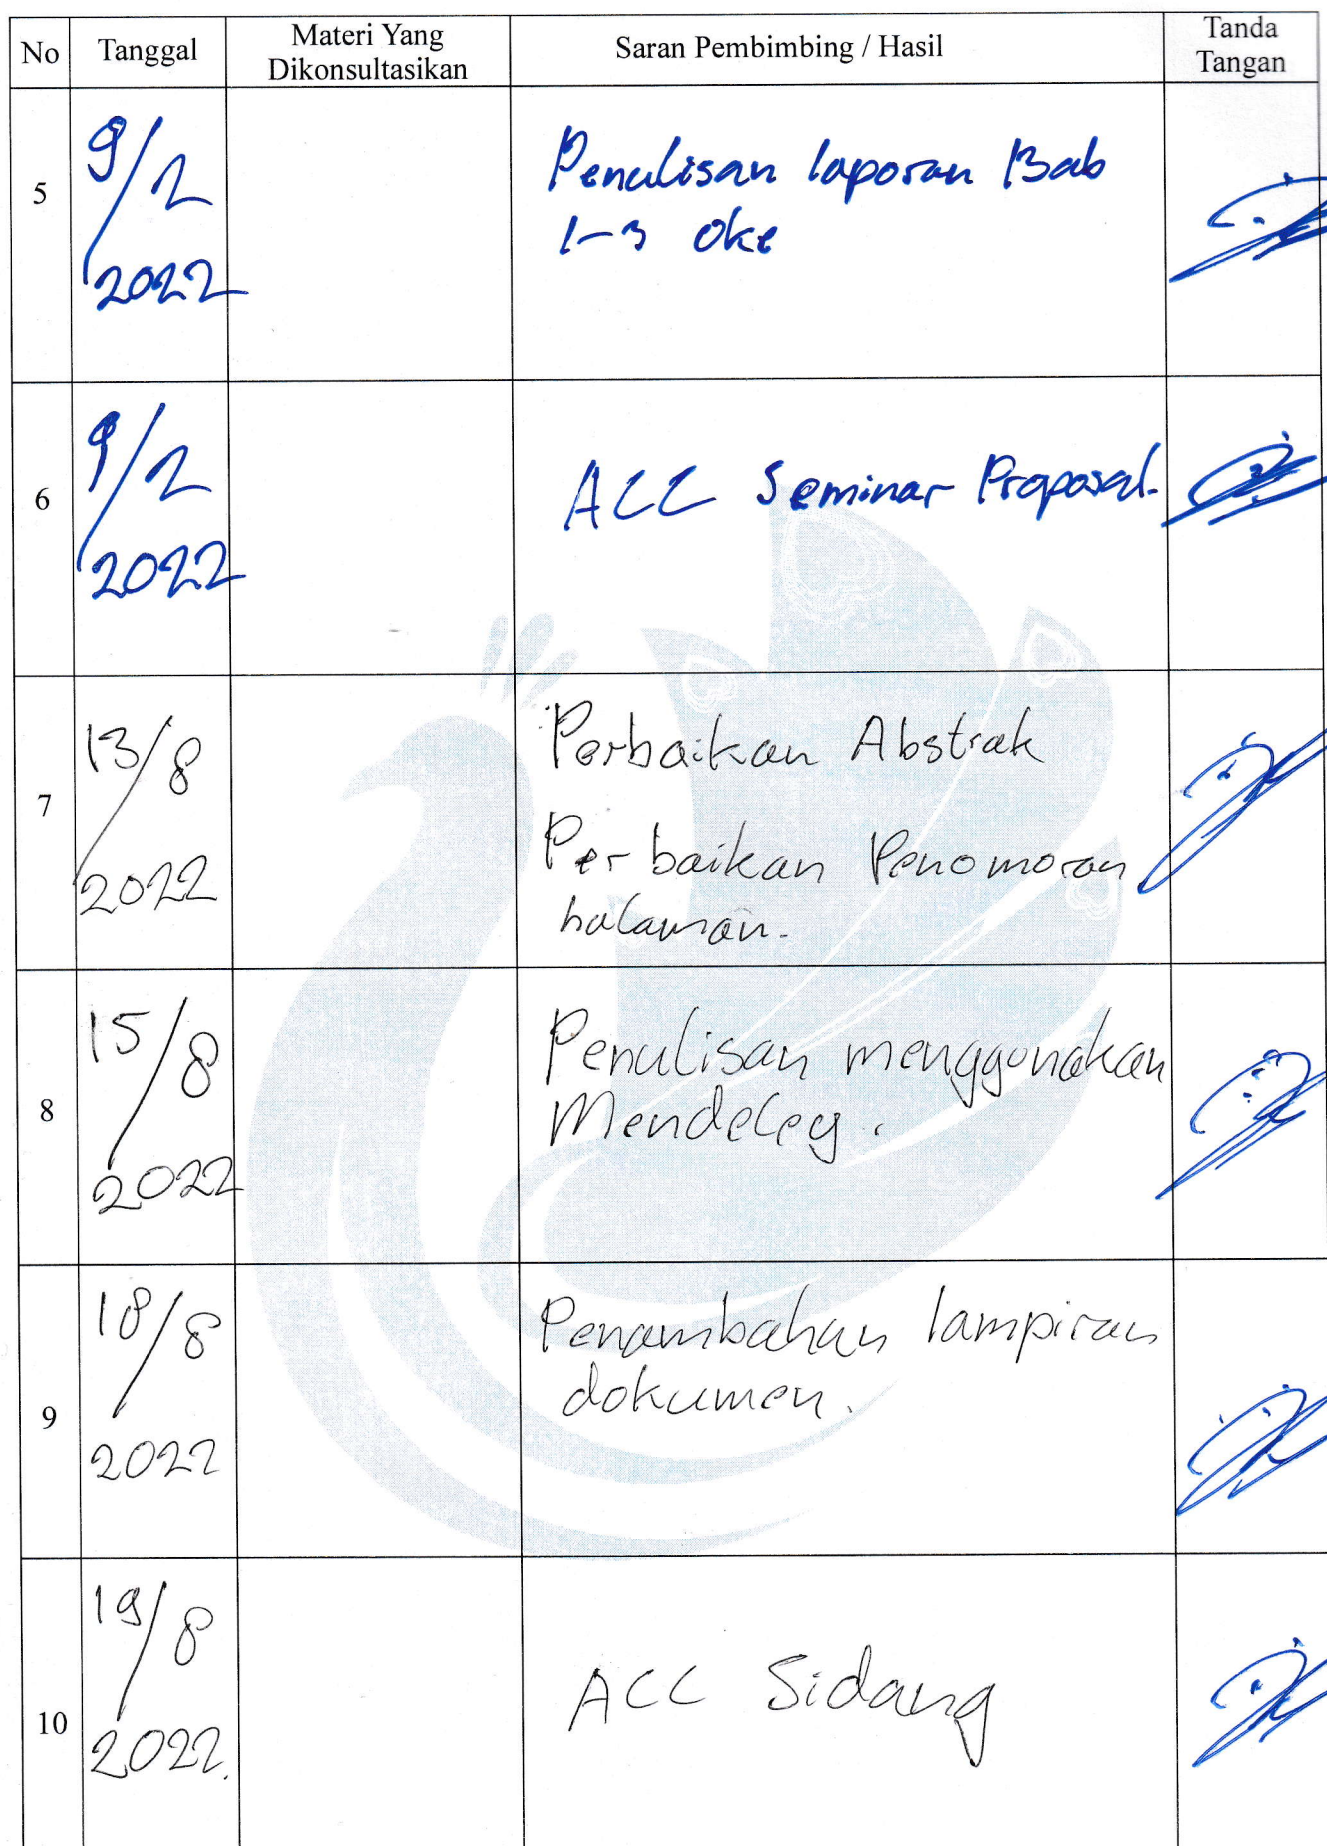 No Tanggal Materi Yang Dikonsultasikan Saran Pembimbing / Hasil Tanda Tangan
5 9/2 2022 Penulisan laporan Bab
1-3 Oke
6 9/2 2022 ACC Seminar Proposal.
7 13/8 2022 Perbaikan Abstrak
Perbaikan Penomoran
halaman.
8 15/8 2022 Penulisan menggunakan
Mendeley.
9 18/8 2022 Penambahan lampiran
dokumen.
10 19/8 2022. ACC Sidang